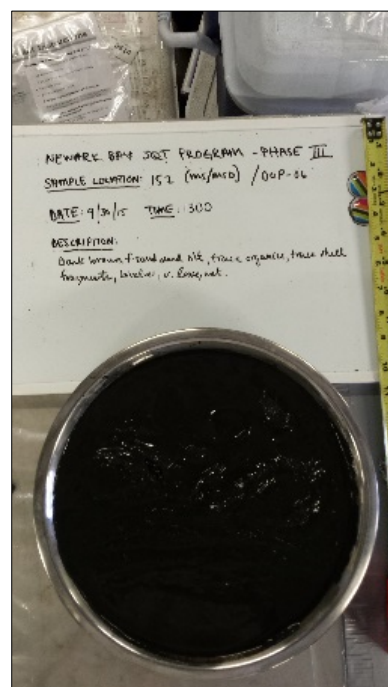 NEWARK BAY SQT PROGRAM - PHASE III
SAMPLE LOCATION: 152 (MS/MSD) / DUP-06
DATE: 9/30/15 TIME: 1300
DESCRIPTION:
Dark brown f-sand and silt, trace organics, trace shell
fragments, v. loose, wet.